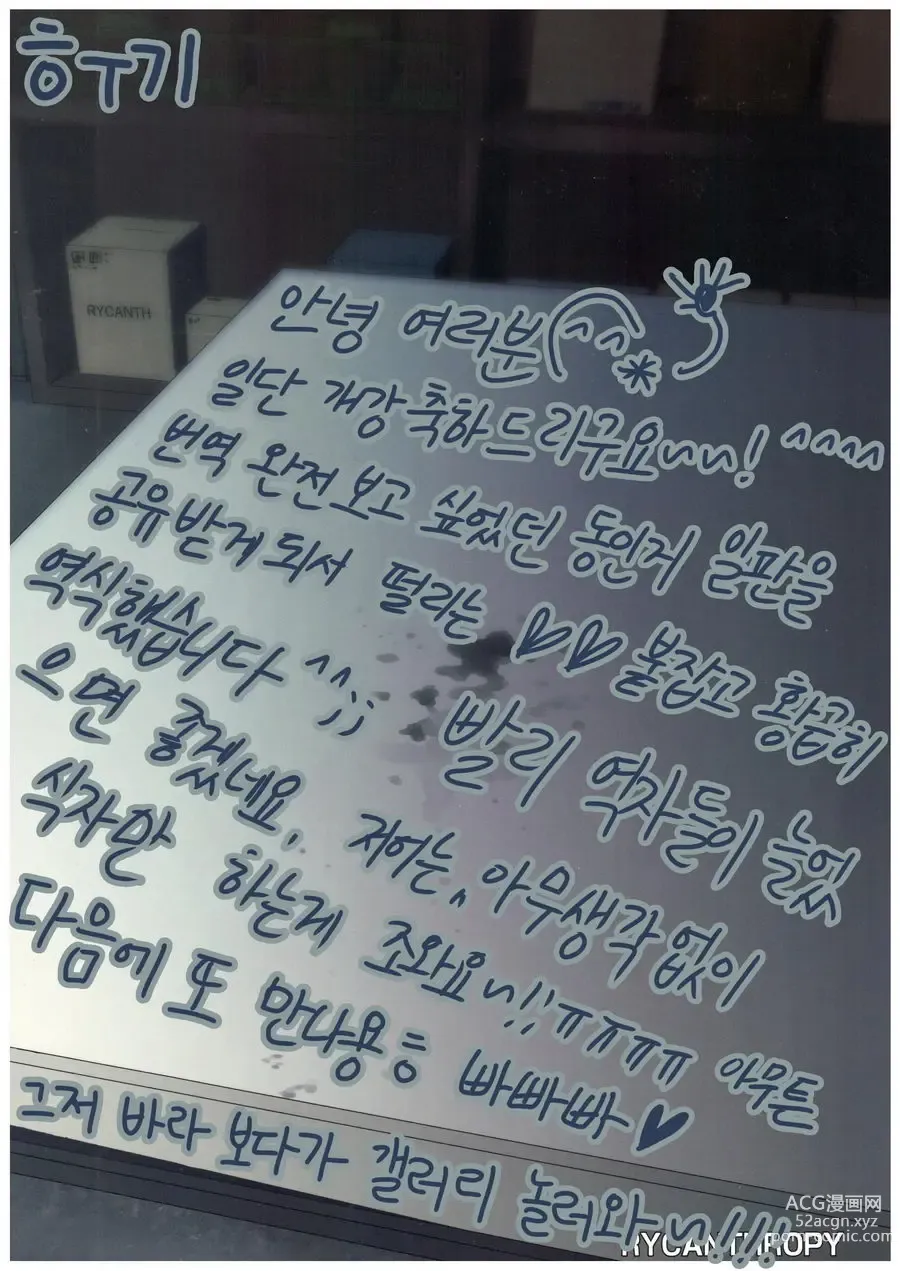 ㅎㅜ기
RYCANTH
안녕 여러분 ^^ *
일단 개강축하드리구요~~! ^^^^
번역 완전 보고 싶었던 동인지 일판을
공유받게 되서 떨리는 ♡♡ 붙잡고 황급히
역식했습니다 ^^;; 빨리 역자들이 늘었
으면 좋겠네요, 저어는, 아무생각 없이
식자만 하는게 조와요~!!ㅠㅠㅠㅠ 아무튼
다음에 또 만나용ㅎ 빠빠빠♥
그저 바라 보다가 갤러리 놀러와~!!!
RYCANTHROPY
ACG漫画网
52acgn.xyz
porncomic.com